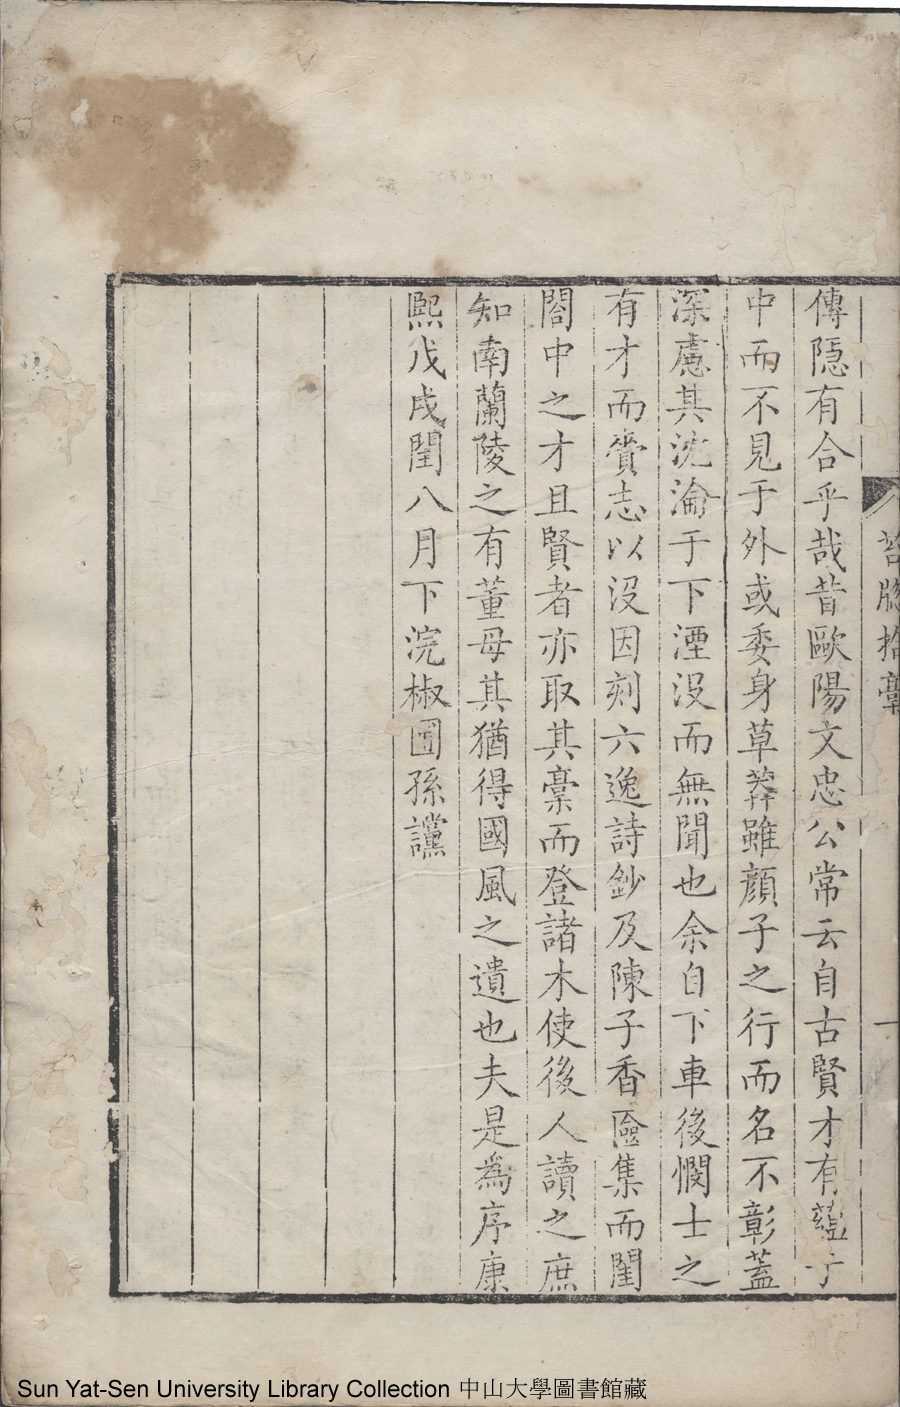 苔牕拾藁
一
傳隱有合乎哉昔歐陽文忠公常云自古賢才有蘊于
中而不見于外或委身草莽雖顏子之行而名不彰蓋
深慮其沈淪于下湮没而無聞也余自下車後憫士之
有才而賫志以没因刻六逸詩鈔及陳子香匳集而閨
閤中之才且賢者亦取其藁而登諸木使後人讀之庶
知南蘭陵之有董母其猶得國風之遺也夫是為序康
熙戊戌閏八月下浣椒園孫讜
Sun Yat-Sen University Library Collection 中山大學圖書館藏